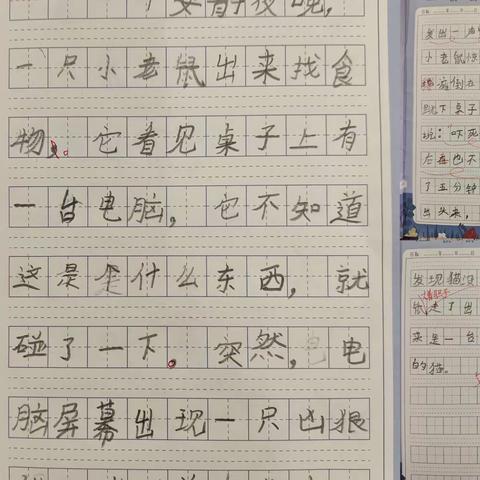 一只小老鼠出来找食
物。它看见桌子上有
一台电脑，它不知道
这是什么东西，就
碰了一下。突然，电
脑屏幕出现一只凶狠
发出一
小老鼠
倒在
跳下桌子
说：吓死
在也不
了五分钟
出头来，
发现猫
鼠走了出
来是一台
的猫。